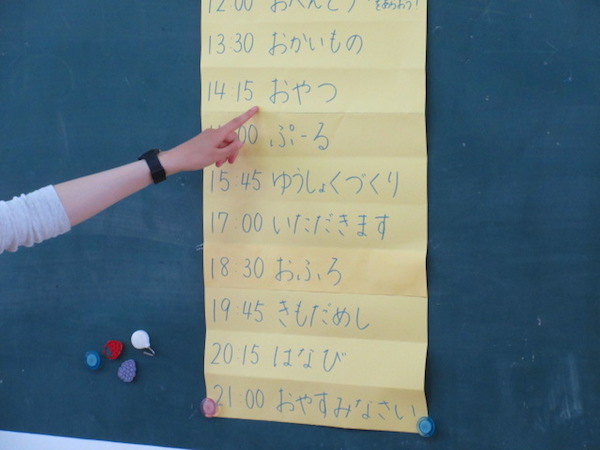 12:00 おべんとう をあらおう!
13:30 おかいもの
14:15 おやつ
:00 ぷーる
15:45 ゆうしょくづくり
17:00 いただきます
18:30 おふろ
19:45 きもだめし
20:15 はなび
21:00 おやすみなさい